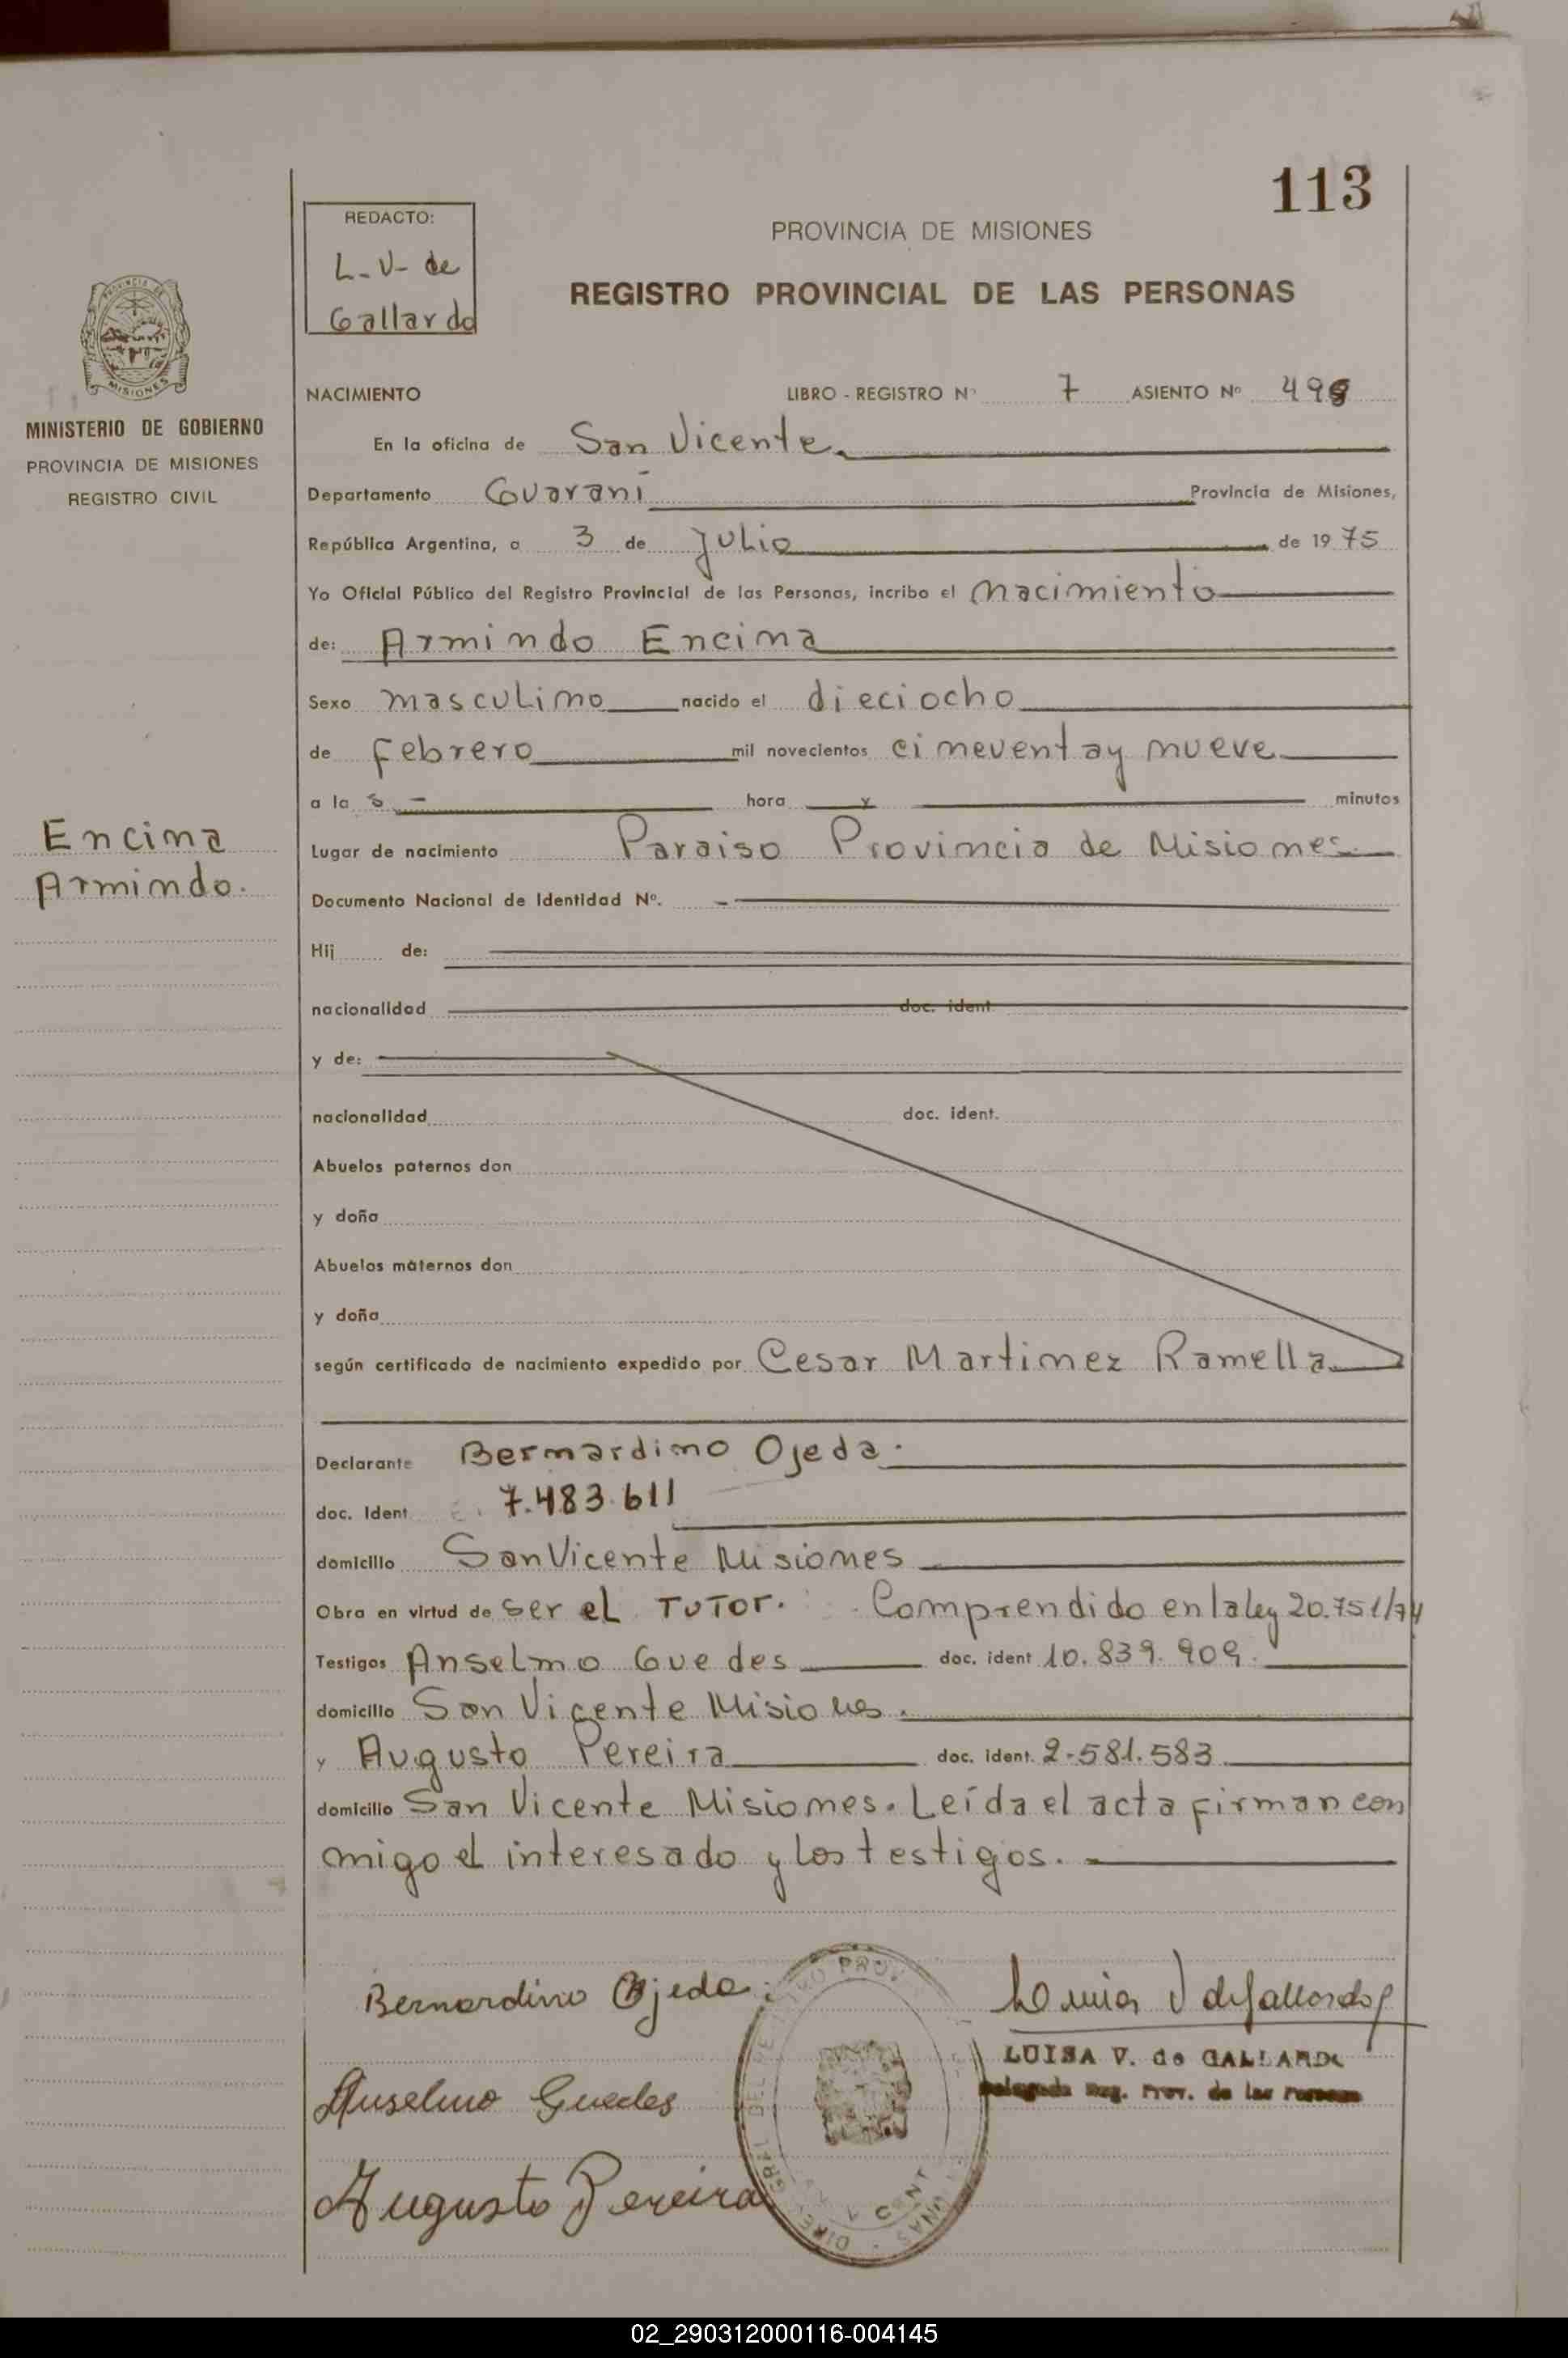 113
REDACTO:
L-V- de
Gallardo
PROVINCIA DE MISIONES
REGISTRO PROVINCIAL DE LAS PERSONAS
MISIONES
MINISTERIO DE GOBIERNO
PROVINCIA DE MISIONES
REGISTRO CIVIL
Encina
Armindo.
NACIMIENTO LIBRO - REGISTRO Nº 7 ASIENTO Nº 498
En la oficina de San Vicente.
Departamento Guarani Provincia de Misiones,
República Argentina, a 3 de Julio de 1975
Yo Oficial Público del Registro Provincial de las Personas, incribo el nacimiento
de: Armindo Encina
Sexo masculino nacido el dieciocho
de febrero mil novecientos cincuentay nueve
a la s - hora y minutos
Lugar de nacimiento Paraiso Provincia de Misiones.
Documento Nacional de Identidad Nº. -
Hij de:
nacionalidad doc. ident.
y de:
nacionalidad doc. ident.
Abuelos paternos don
y doña
Abuelos maternos don
y doña
según certificado de nacimiento expedido por Cesar Martinez Ramella
Declarante Bernardino Ojeda.
doc. Ident 7.483.611
domicilio San Vicente Misiones
Obra en virtud de ser el TUTOR. Comprendido en la ley 20.751/74
Testigos Anselmo Guedes doc. ident 10.839.909.
domicilio San Vicente Misiones.
y Augusto Pereira doc. ident. 2-581.583
domicilio San Vicente Misiones. Leída el acta firman con
migo el interesado y los testigos.
Bernardino Ojeda
Luisa V de Gallardo
LUISA V. de GALLARDO
Delegada Reg. Prov. de las Personas
Anselmo Guedes
Augusto Pereira
02_290312000116-004145